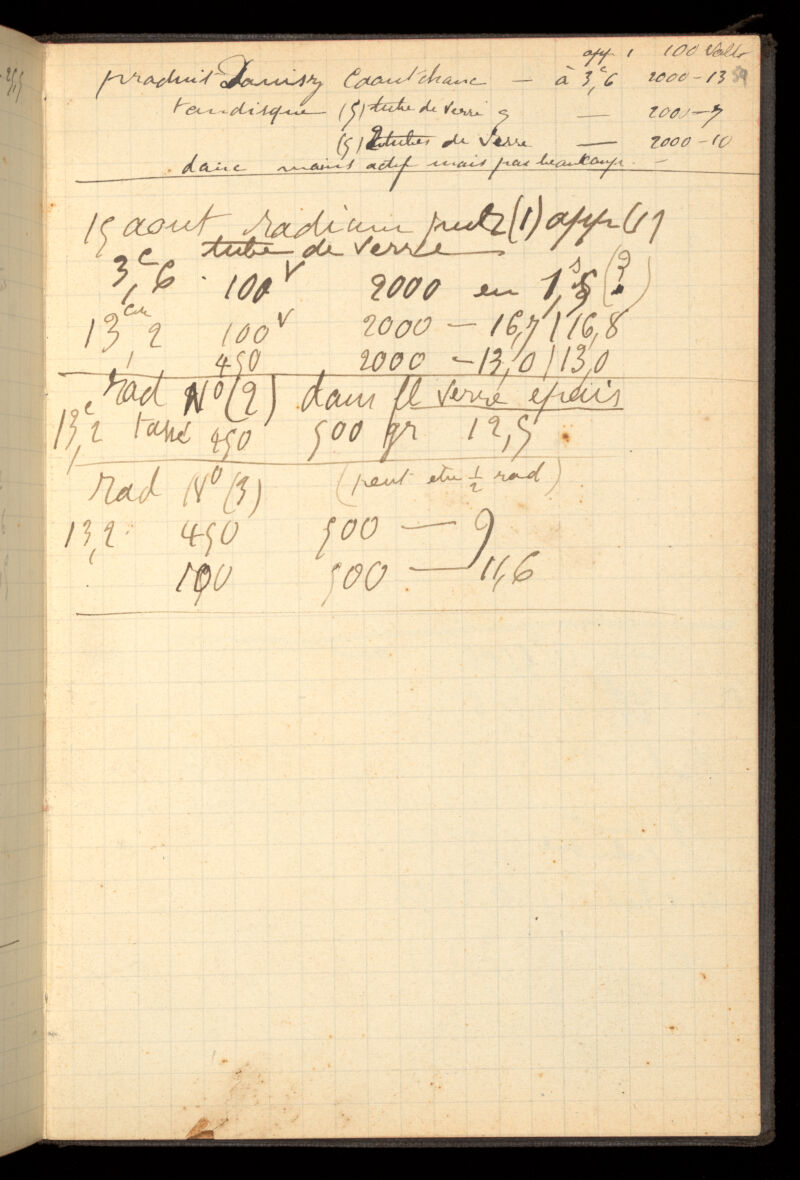 app 1 100 Volts
produit Danisz Caoutchouc — à 3,c6 2000 – 13
tandisque (5) tube de verre — 2000 – 7
(5) 2 tubes de verre — 2000 – 10
donc moins actif mais pas beaucoup. –
15 aout radium (1) app (1)
tube de verre
3,c6 100v 2000 en 1,s5 (?)
13,cm2 100v 2000 — 16,7 | 16,8
450 2000 — 13,0 | 13,0
rad No (2) dans fl verre épais
13,c2 tassé 450 500 gr 12,5
rad No (3) (peut etre ½ rad)
13,2 450 500 — 9
100 500 — 11,6